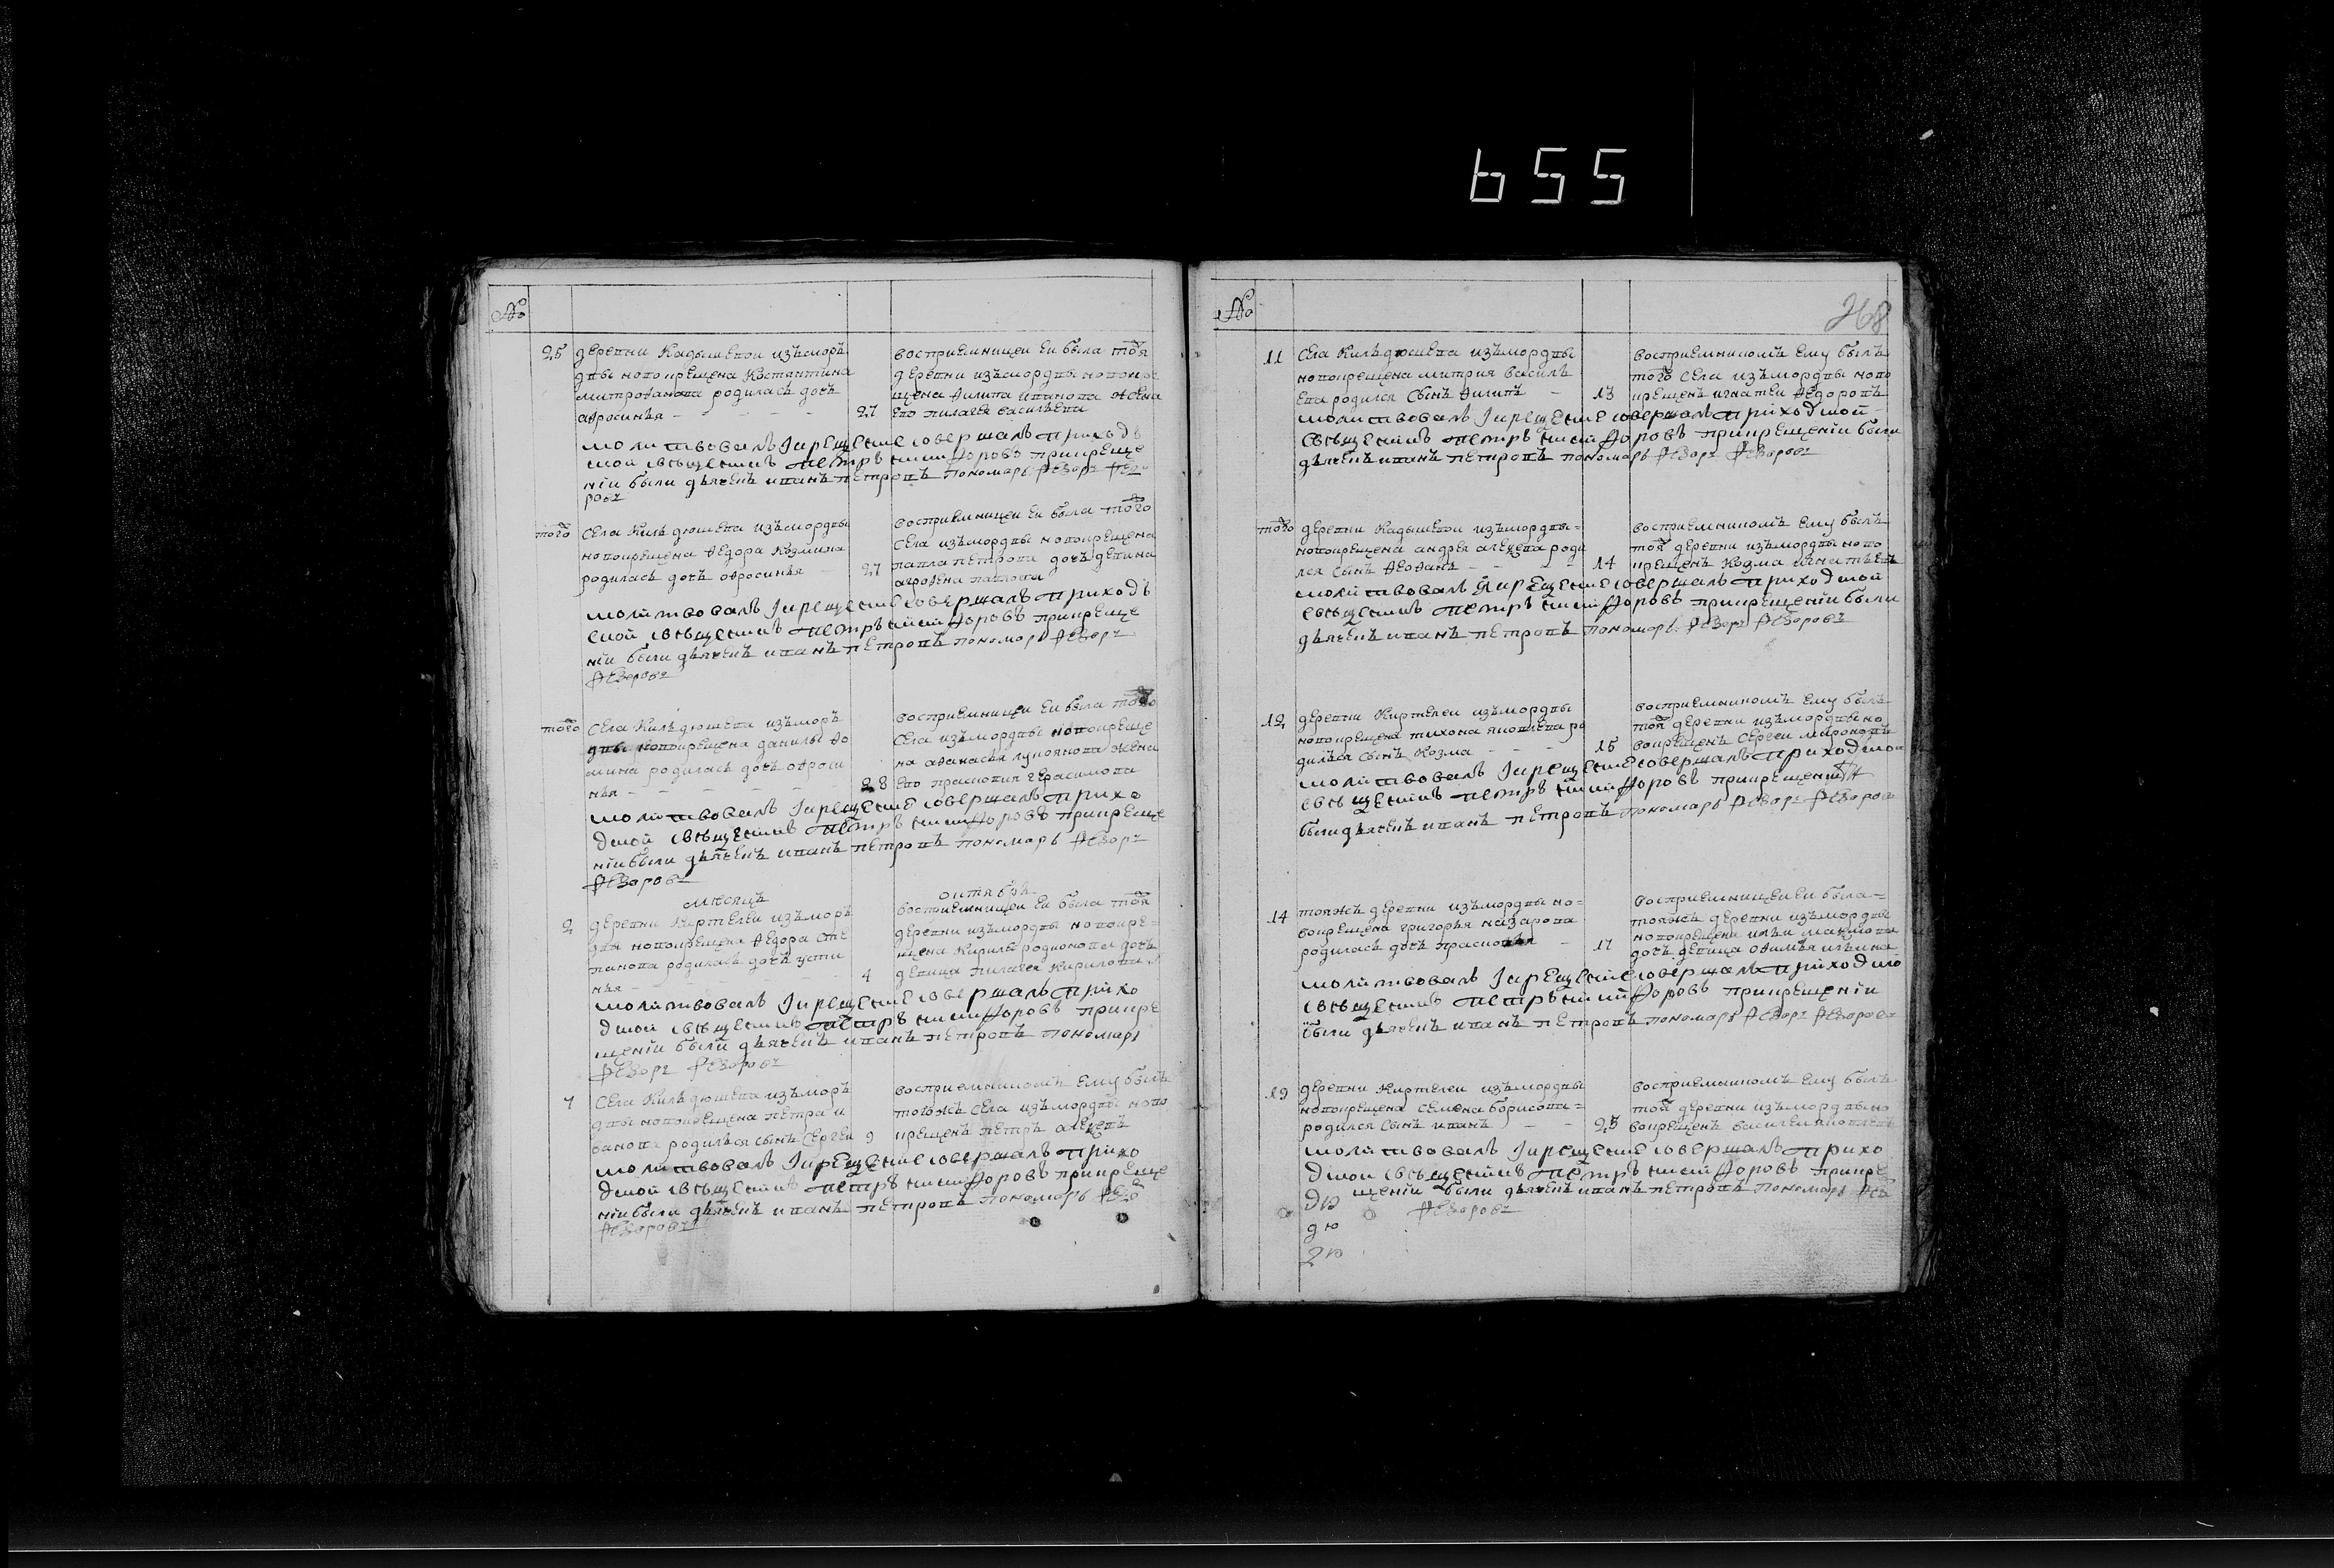 655
№
25 деревни Кадышевои изъ морѣ
двы новокрещена Костянтина
митрофанова родилась дочь
афросинья 27
восприемницеи еи была тоя
деревни изъ мордвы новокре
щена Филипа иванова жена
ево пилагея васильева
молитвовалъ Iкрещение совершалъ приходъ
ской священникъ петръ никифоровъ прикреще
ніи были дьячекъ иванъ петровъ пономарь Федоръ Федо
ровъ
того села Кильдюшева изъ мордвы
новокрещена Федора Козмина
родилась дочь офросинья 27
восприемницеи еи была того
села изъ мордвы новокрещена
павла петрова дочь девица
агрофена павлова
молитвовалъ Iкрещение совершалъ приходъ
ской священникъ петръ никифоровъ прикреще
ніи были дьячекъ иванъ петровъ пономарь Федоръ
Федоровъ
того села Кильдюшева изъ морѣ
двы новокрещена данилы фо
мина родилась дочь офроси
нья 28
восприемницеи еи была того
села изъ мордвы новокреще
на афанасья лукоянова жена
ево прасковия герасимова
молитвовалъ Iкрещение совершалъ прихо
дской священникъ петръ никифоровъ прикреще
ніи были дьячекъ иванъ петровъ пономарь Федоръ
Федоровъ
месяцъ октябрь
2 деревни Киртелеи изъ морѣ
двы новокрещена Федора сте
панова родилась дочь усти
нья 4
восприемницеи еи была тоя
деревни изъ мордвы новокре=
щена Кирилы родионова дочь
девица пилагея Кирилова
молитвовалъ Iкрещение совершалъ прихо
дской священникъ петръ никифоровъ прикре
щеніи были дьячекъ иванъ петровъ пономарь
Федоръ Федоровъ
7 села Кильдюшева изъ морѣ
двы новокрещена петра и
ванова родилься сынъ сергеи 9
восприемникомъ ему былъ
тогожъ села изъ мордвы ново
крещенъ петръ алексеевъ
молитвовалъ Iкрещение совершалъ прихо
дской священникъ петръ никифоровъ прикреще
ніи были дьячекъ иванъ петровъ пономарь Федо
Федоровъ
№
268
11 села Кильдюшева изъ мордвы
новокрещена митрия василь
ева родился сынъ Филипъ 13
восприемникомъ ему былъ
того села изъ мордвы ново
крещенъ игнатеи Федоровъ
молитвовалъ Iкрещение совершалъ приходской
священникъ петръ никифоровъ прикрещеніи были
дьячекъ иванъ петровъ пономарь Федоръ Федоровъ
того деревни Кадышевои изъ мордвы=
новокрещена андрея алексева роди
лся сынъ Феофанъ 14
восприемникомъ ему былъ
тоя деревни изъ мордвы ново
крещенъ Козма игнатьевъ
молитвовалъ Iкрещение совершалъ приходской
священникъ петръ никифоровъ прикрещеніи были
дьячекъ иванъ петровъ пономарь Федоръ Федоровъ
12 деревни Киртелеи изъ мордвы
новокрещена тихона яковлева ро
дилься сынъ Козма 15
восприемникомъ ему былъ
тоя деревни изъ мордвы но
вокрещенъ сергеи мироновъ
молитвовалъ Iкрещение совершалъ приходской
священникъ петръ никифоровъ прикрещеніи
были дьячекъ иванъ петровъ пономарь Федоръ Федоров
14 тояжъ деревни изъ мордвы но=
вокрещена григорья назарова
родилась дочь прасковья 17
восприемницеи еи была=
тояжъ деревни изъ мордвы
новокрещена ильи максимова
дочь девица офимья ильина
молитвовалъ Iкрещение совершалъ приходско
священникъ петръ никифоровъ прикрещеніи
были дьячекъ иванъ петровъ пономарь Федоръ Федоровъ
19 деревни Киртелеи изъ мордвы
новокрещена семена борисова=
родился сынъ иванъ 25
восприемникомъ ему былъ
тоя деревни изъ мордвы но
вокрещенъ василеи яковлевъ
молитвовалъ Iкрещение совершалъ прихо
дской священникъ петръ никифоровъ прикре
щеніи были дьячекъ иванъ петровъ пономарь Фе
Федоровъ